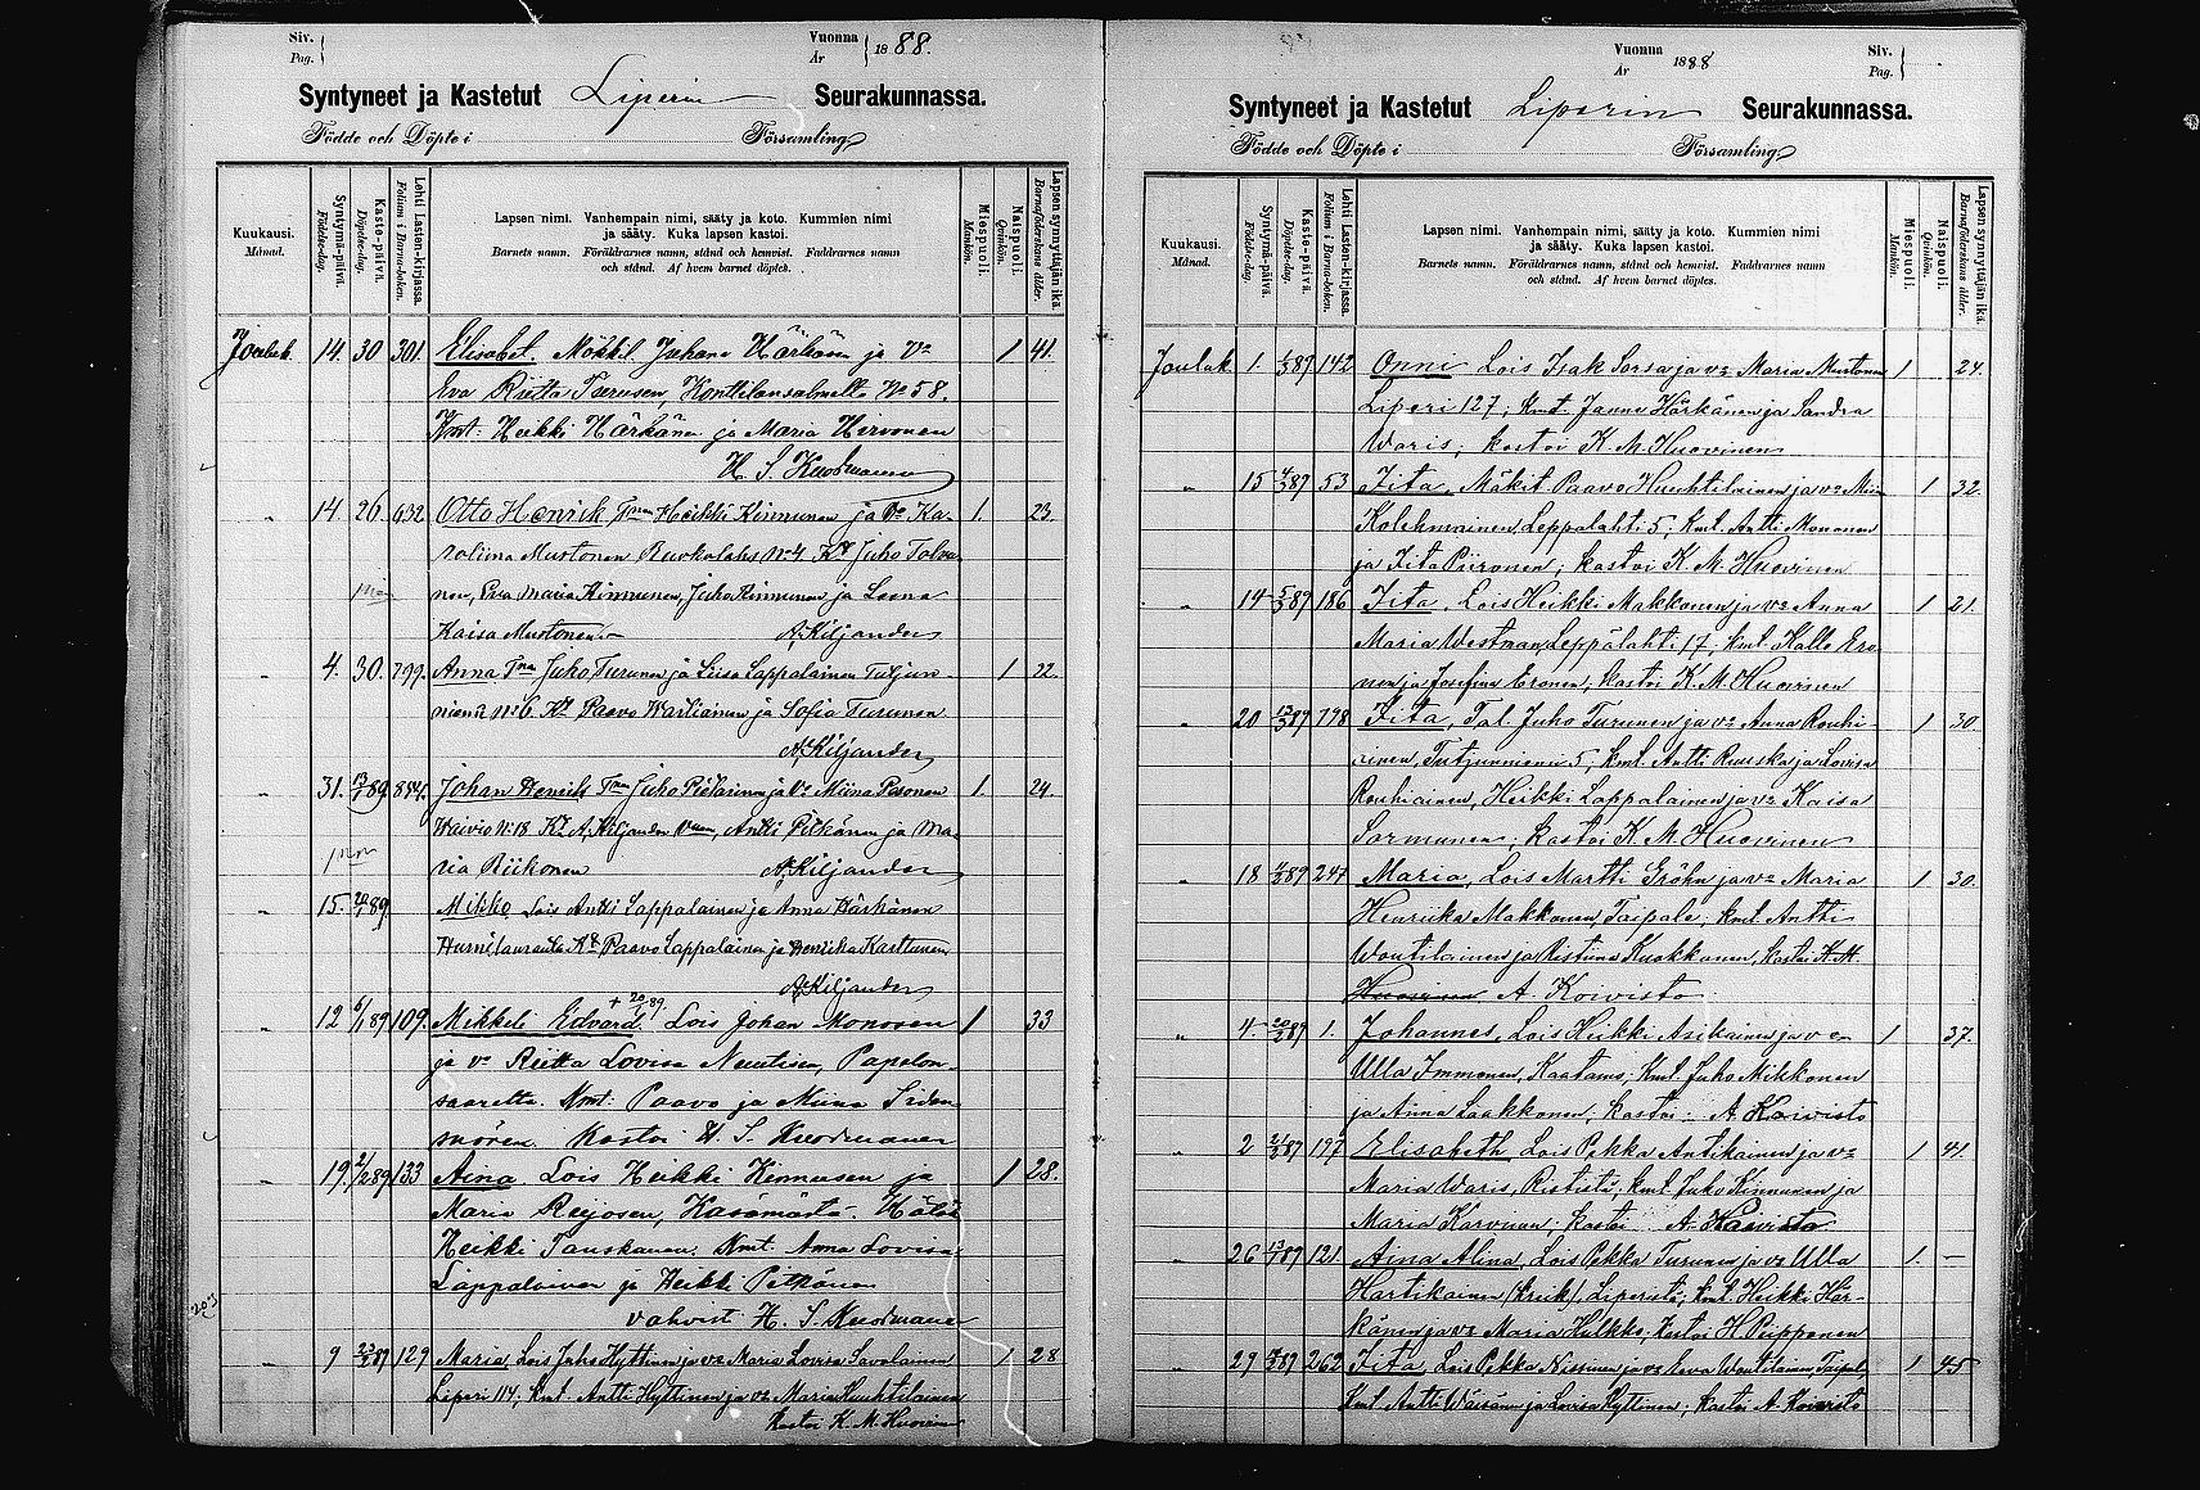 Siv.
Pag.
Vuonna
År
1888.
Syntyneet ja Kastetut Liperin Seurakunnassa.
Födde och Döpte i Församling
Kuukausi.
Månad.
Syntymä-päivä.
Födelse-dag.
Kaste-päivä.
Döpelse-dag.
Lehti Lasten-kirjassa.
Folium i Barna-boken.
Lapsen nimi. Vanhempain nimi, sääty ja koto. Kummien nimi
ja sääty. Kuka lapsen kastoi.
Barnets namn. Föräldrarnes namn, stånd och hemvist. Faddrarnes namn
och stånd. Af hvem barnet döptes.
Miespuoli.
Mankön.
Naispuoli.
Qvinkön.
Lapsen synnyttäjän ikä.
Barnaföderskans ålder.
14. 30 301. Elisabet. Mökkil. Juhana Härkönen ja Vo 1 41.
Eva Rietta Konttilansalmella No 58.
Kmt: Heikki Härkänen ja Maria Hirvonen
14. 26. 632 Otto Henrik Heikki Kinnunen ja Vo Ka- 1. 23.
roliina Mustonen No 4. Juho Tolva-
nen, Eva Maria Kinnunen, Juho Kinnunen ja Leena
Kaisa Mustonen. A. Kiljander
4. 30. 799. Anna Juho Turunen ja Liisa Lappalainen Tutjun- 1 22.
niemi No 6. Paavo ja Sofia Turunen.
A. Kiljander
31. 13/1 89. Johan Henrik Juho Pietarinen ja Vo Miina Pesonen 1. 24.
Waivio No 18 A. Kiljander Antti Pitkänen ja Ma-
ria Riikonen A. Kiljander
15. 89 Mikko Lois Antti Lappalainen ja Anna Härkänen
Paavo Lappalainen ja Henrika Karttunen
A. Kiljander
+ 20/ 89.
12 6/1 89 109. Mikkeli Edvard. Lois Johan Monosen 1 33
ja vo Riitta Lovisa Nuutisen, Papelon-
saarelta. Kmt: Paavo ja Miina
Kastoi H. S.
19. 2/2 89 133 Aina. Lois Heikki Kinnusen ja 1 28.
Maria Reijosen, Käsämästä.
Heikki Tanskanen. Kmt. Anna Lovisa
Lappalainen ja Heikki Pitkänen
vahvist. H. S.
9 23/ 89 129 Maria, Lois Juho Hyttinen ja vo Maria Lovisa Savolainen 1 28
Liperi 114; kmt. Antti Hyttinen ja vo Maria Huuhtilainen
kastoi K. M. Huovinen
203
Vuonna
År
1888
Siv.
Pag.
Syntyneet ja Kastetut Liperin Seurakunnassa.
Födde och Döpte i Församling
Kuukausi.
Månad.
Syntymä-päivä.
Födelse-dag.
Kaste-päivä.
Döpelse-dag.
Lehti Lasten-kirjassa.
Folium i Barna-boken.
Lapsen nimi. Vanhempain nimi, sääty ja koto. Kummien nimi
ja sääty. Kuka lapsen kastoi.
Barnets namn. Föräldrarnes namn, stånd och hemvist. Faddrarnes namn
och stånd. Af hvem barnet döptes.
Miespuoli.
Mankön.
Naispuoli.
Qvinkön.
Lapsen synnyttäjän ikä.
Barnaföderskans ålder.
Jouluk 1. 1/3 89 142 Onni Lois Isak Sorsa ja vo Maria Mustonen 1 24.
Liperi 127; kmt. Janne Härkänen ja Sandra
Waris; kastoi K. M. Huovinen
„ 15 4/3 89 53 Iita, Mäkit. Paavo Huuhtilainen ja vo 1 32.
Kolehmainen, Leppälahti 5; kmt. Antti Mononen
ja Iita Piironen; kastoi K. M. Huovinen
„ 14 5/3 89 186 Iita, Lois Heikki Makkonen ja vo Anna 1 21.
Maria Westman, Leppälahti 17; kmt. Kalle Ero-
nen ja Josefina Eronen; kastoi K. M. Huovinen
„ 20 13/3 89 798 Iita, Tal. Juho Turunen ja vo Anna Rouhi- 1 30.
ainen, Tutjunniemi 5; kmt. Antti Ruuska ja Lovisa
Rouhiainen, Heikki Lappalainen ja vo Kaisa
Sormunen; kastoi K. M. Huovinen
„ 18 89 247 Maria, Lois Martti Gröhn ja vo Maria 1 30.
Henriika Makkonen, Taipale; kmt. Antti
Woutilainen ja Ristiina Kuokkanen, kastoi K. M.
Huovinen A. Koivisto
„ 4. 20/2 89 1. Johannes, Lois Heikki Asikainen ja vo 1 37.
Ulla Immonen, Kaatamo; kmt. Juho Mikkonen
ja Anna Laakkonen; kastoi A. Koivisto
„ 2 21/ 89 197 Elisabeth Lois Pekka Antikainen ja vo 1 41.
Maria Waris, Rististä; kmt. Juho Kinnunen ja
Maria Karvinen; kastoi A. Koivisto
„ 26 13/ 89 121. Aina Alina, Lois Pekka Turunen ja vo Ulla 1. —
Hartikainen (kreik), Liperistä; kmt. Heikki Här-
känen ja vo Maria Hulkko; kastoi H. Piipponen
„ 29 89 262 Iita, Lois Pekka Nissinen ja vo Eeva Woutilainen, 1 45
kmt. Antti Wäisänen ja Lovisa Hyttinen; kastoi A. Koivisto